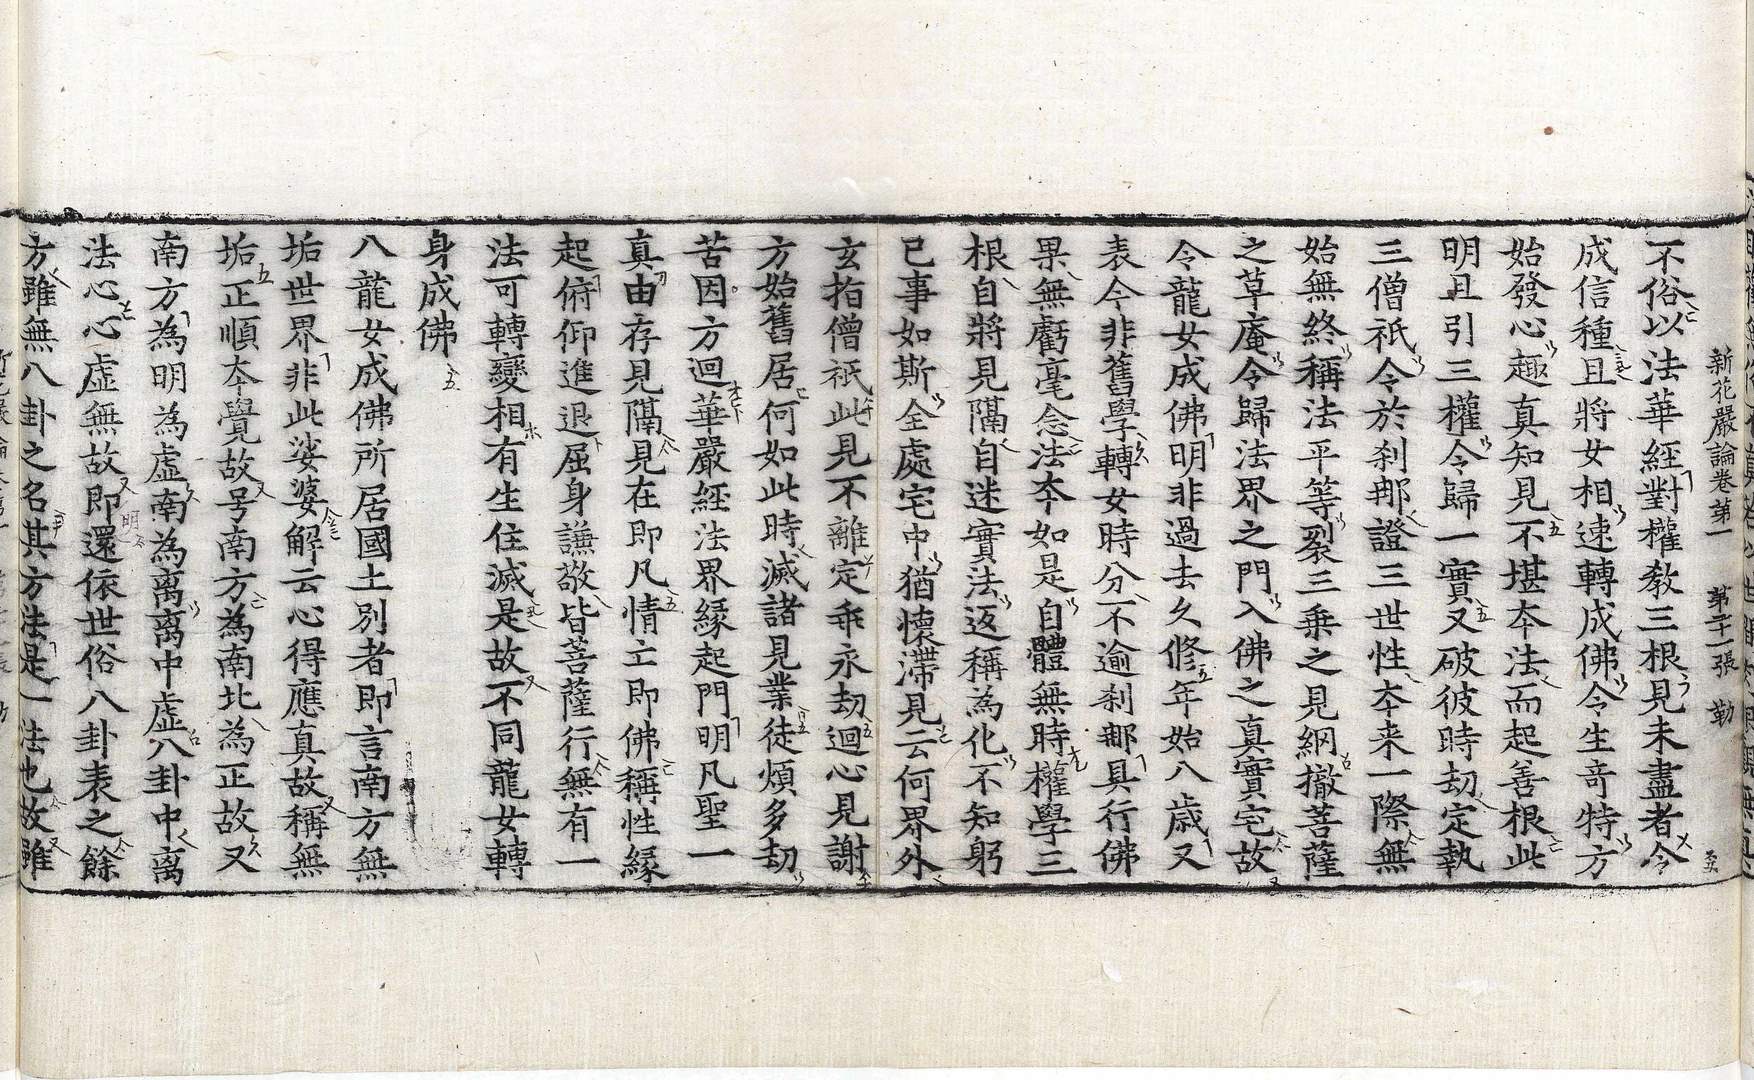 新花嚴論卷第一 第二十一張 勒
不俗以法華經對權教三根見未盡者令
成信種且將女相速轉成佛令生竒特方
始發心趣真知見不堪夲法而起善根此
明且引三權令歸一實又破彼時劫定執
三僧祇令於刹那證三世性夲来一際無
始無終稱法平等裂三乗之見網撤菩薩
之草庵令歸法界之門入佛之真實宅故
令龍女成佛明非過去久修年始八歳又
表今非舊學轉女時分不逾刹那具行佛
果無虧毫念法夲如是自體無時權學三
根自將見隔自迷實法返稱為化不知躬
已事如斯全處宅中猶懷滯見云何界外
玄指僧祇此見不離定乖永劫迴心見謝
方始舊居何如此時滅諸見業徒煩多劫
苦因方迴華嚴經法界緣起門明凡聖一
真由存見隔見在即凡情亡即佛稱性緣
起俯仰進退屈身謙敬皆菩薩行無有一
法可轉變相有生住滅是故不同龍女轉
身成佛
八龍女成佛所居國土別者即言南方無
垢世界非此娑婆解云心得應真故稱無
垢正順夲覺故号南方為南北為正故又
南方為明為虛南為离离中虛八卦中离
法心心虛無故即還依世俗八卦表之餘
方雖無八卦之名其方法是一法也故雖